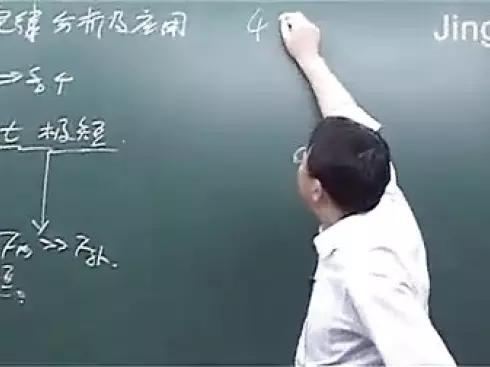 定律分析及应用
4
Jing
⇒ 多个
t 极短
F内 >> F外